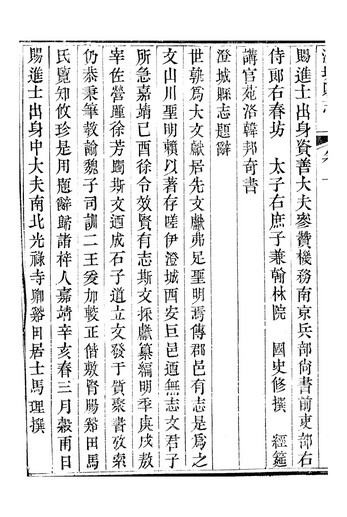 賜進士出身資善大夫參贊機務南京兵部尚書前吏部右
侍郎右春坊 太子右庶子兼翰林院 國史修撰 經筵
講官苑洛韓邦奇書
澄城縣志題辭
世孰為大文獻居先文獻弗足聖明焉傳郡邑有志是為之
文山川聖明賴以著存嗟伊澄城西安巨邑迺無志文君子
所急嘉靖己酉徐令效賢有志斯文採獻纂編明季庚戌敖
宰佐營厘徐芳闕斯文迺成石子道立文發于質聚書攷索
仍恭秉筆敎諭魏子司訓二王爰加較正偕敷腎腸谿田馬
氏覽知攸珍是用題辭歸諸梓人嘉靖辛亥春三月穀雨日
賜進士出身中大夫南北光祿寺卿谿田居士馬理撰